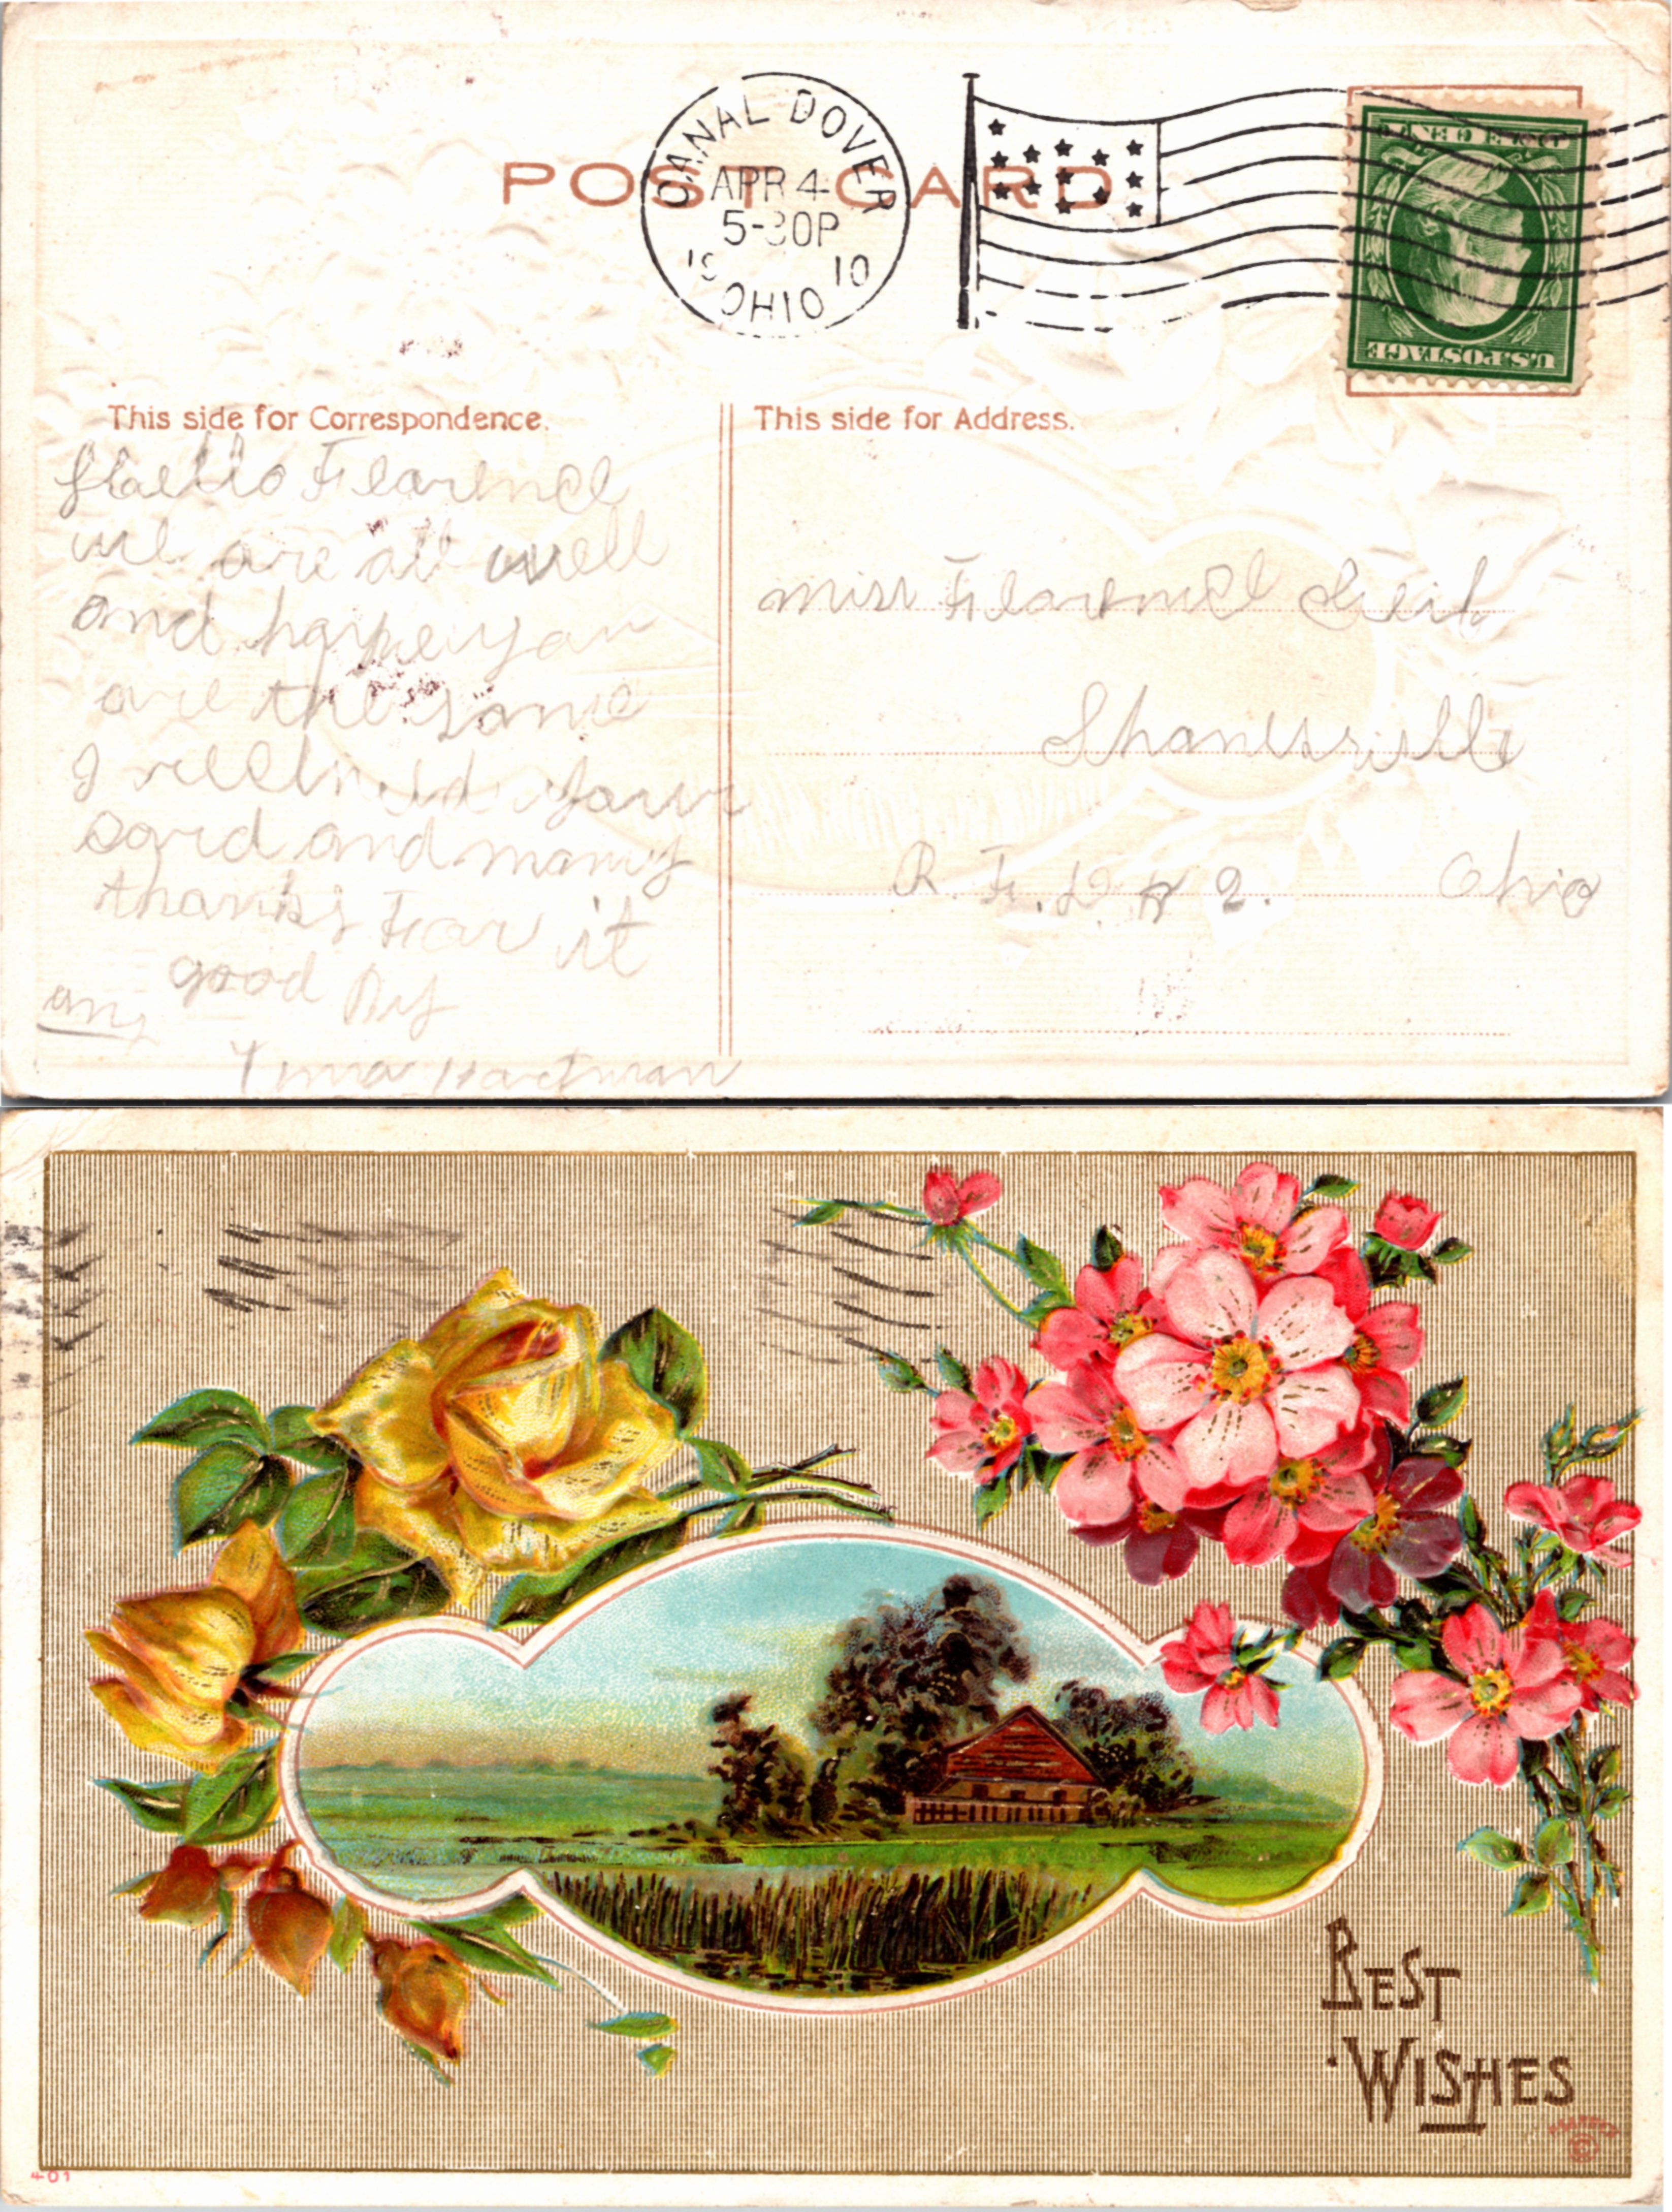 POST CARD
CANAL DOVER
APR 4
5-30P
19 10
OHIO
ONE CENT
U.S. POSTAGE
This side for Correspondence.
This side for Address.
Hello Flarence
we are all well
and hope you
are the same
I received your
card and many
thanks For it
good By
Hartman
Miss Flarence
Shanesville
R. F. D # 2. Ohio
BEST
WISHES
401